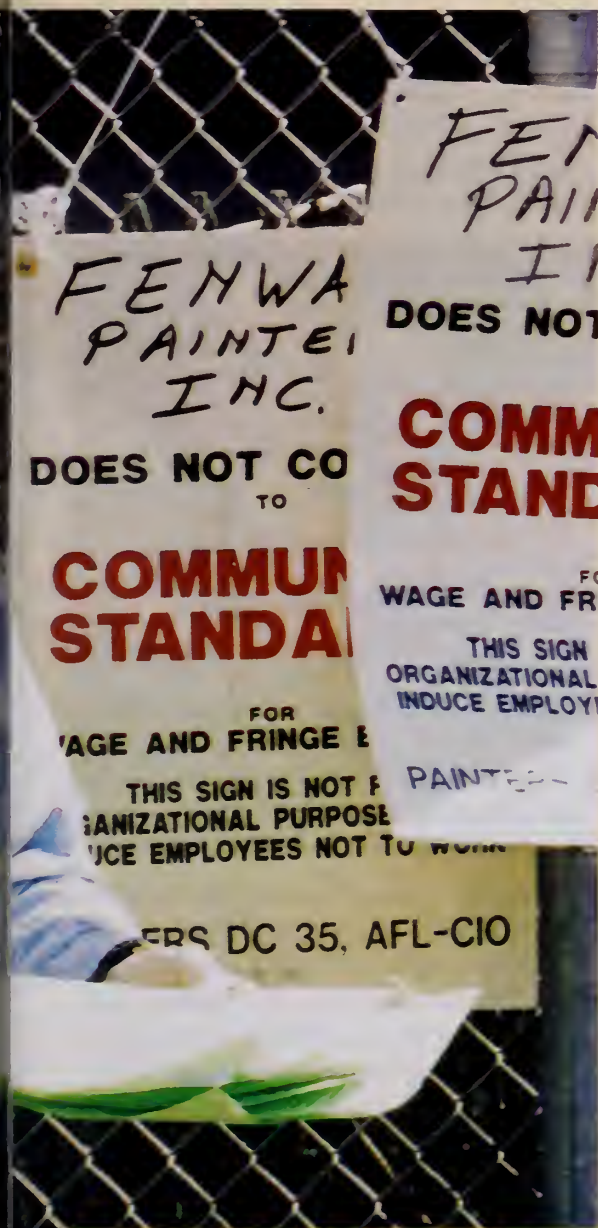 FENWA
PAINTE
INC.
DOES NOT CO
TO
COMMUN
STANDA
FOR
AGE AND FRINGE
THIS SIGN IS NOT
GANIZATIONAL PURPOSE
UCE EMPLOYEES NOT TO WORK
ERS DC 35, AFL-CIO
FEN
PAIN
IN
DOES NOT
COMM
STAND
FO
WAGE AND FR
THIS SIGN
ORGANIZATIONAL
INDUCE EMPLOY
PAINTERS